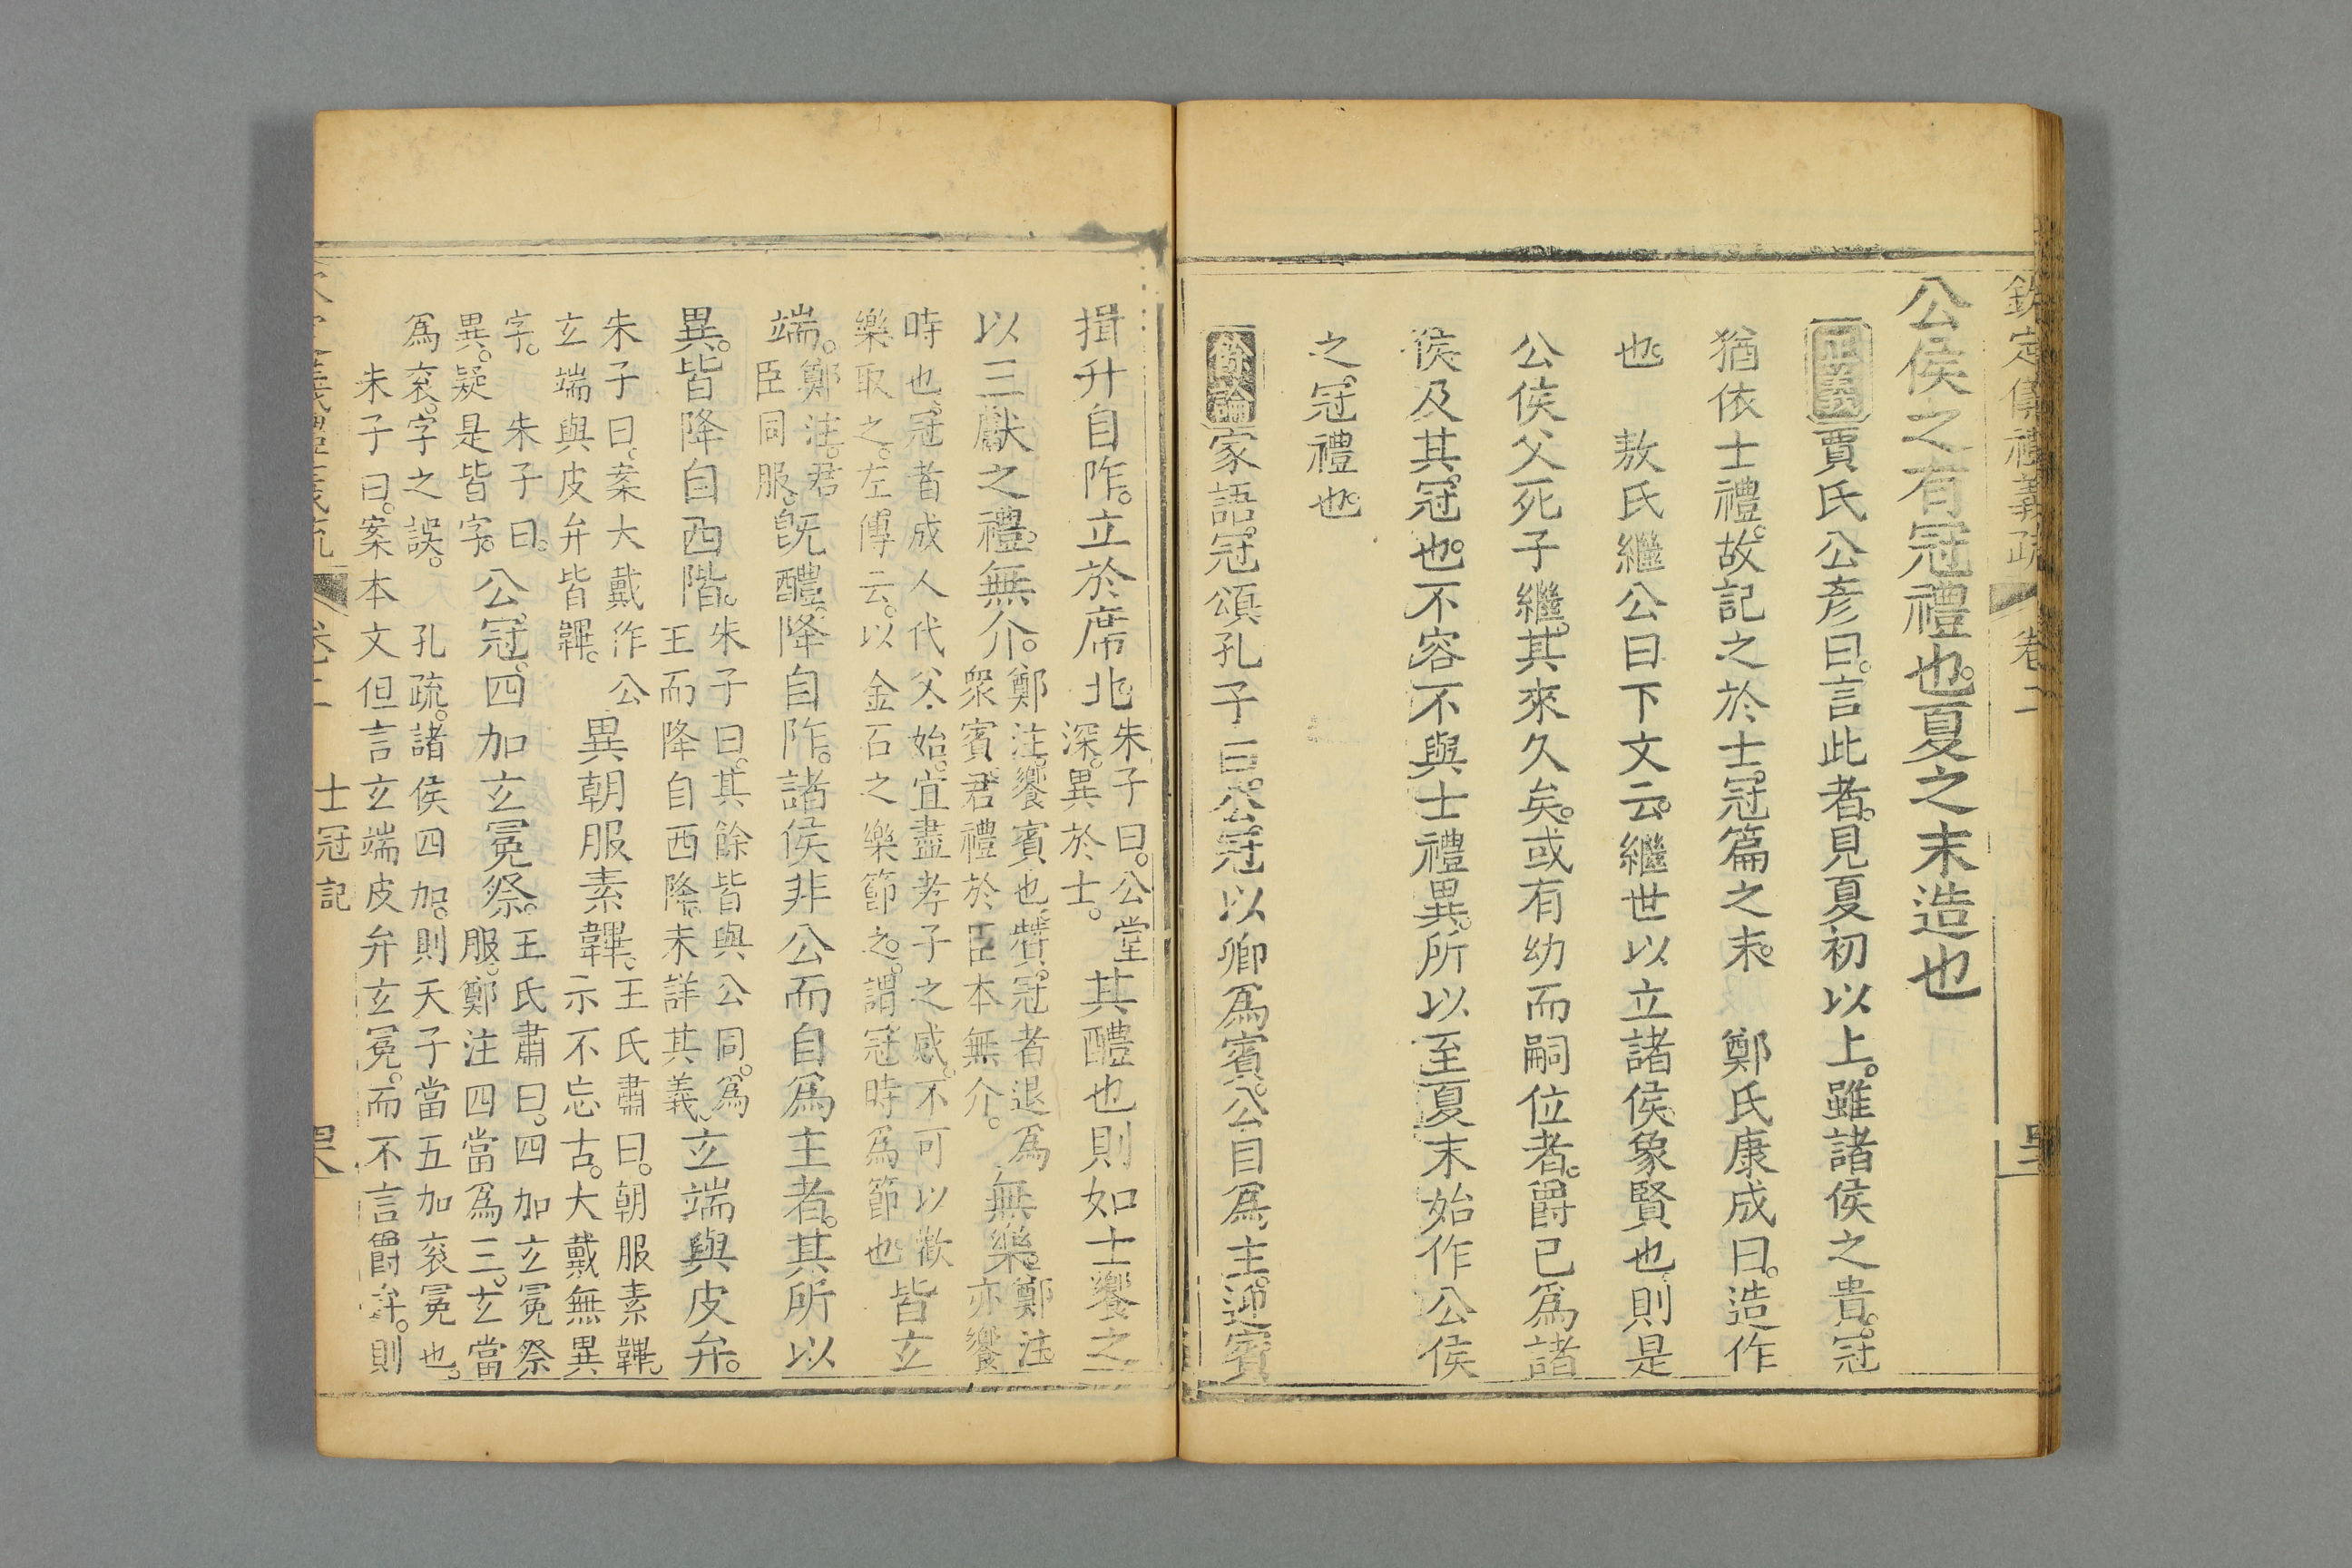 欽定儀禮義疏 卷二
公侯之有冠禮也。夏之末造也
正義賈氏公彥曰。言此者。見夏初以上。雖諸侯之貴。冠
猶依士禮。故記之於士冠篇之末。 鄭氏康成曰。造作
也。 敖氏繼公曰下文云。繼世以立諸侯象賢也則是
公侯父死子繼。其來久矣。或有幼而嗣位者。爵已爲諸
侯及其冠也。不容不與士禮異。所以至夏末始作公侯
之冠禮也。
餘論家語。冠頌孔子曰。公冠以卿爲賓。公自爲主。迎賓
揖升自阼。立於席北朱子曰。公堂
深。異於士。其醴也則如士饗之
以三獻之禮。無介。鄭注。饗賓也。贊冠者退爲
衆賓。君禮於臣本無介。無樂。鄭注。
亦饗
時也。冠者成人代父始。宜盡孝子之感。不可以歡
樂取之。左傳云。以金石之樂節之。謂冠時爲節也。皆玄
端。鄭注。君
臣同服。旣醴。降自阼。諸侯非公而自爲主者。其所以
異。皆降自西階。朱子曰。其餘皆與公同。爲
王而降自西階。未詳其義。玄端與皮弁。
朱子曰。案大戴作公
玄端與皮弁皆韠。異朝服素韠。王氏肅曰。朝服素韠。
示不忘古。大戴無異
字。 朱子曰。
異。疑是皆字。公冠。四加玄冕祭。王氏肅曰。四加玄冕祭
服。鄭注四當爲三。玄當
爲衮。字之誤。 孔疏。諸侯四加。則天子當五加衮冕也。
朱子曰。案本文但言玄端皮弁玄冕。而不言爵弁。則
卷二 士冠記